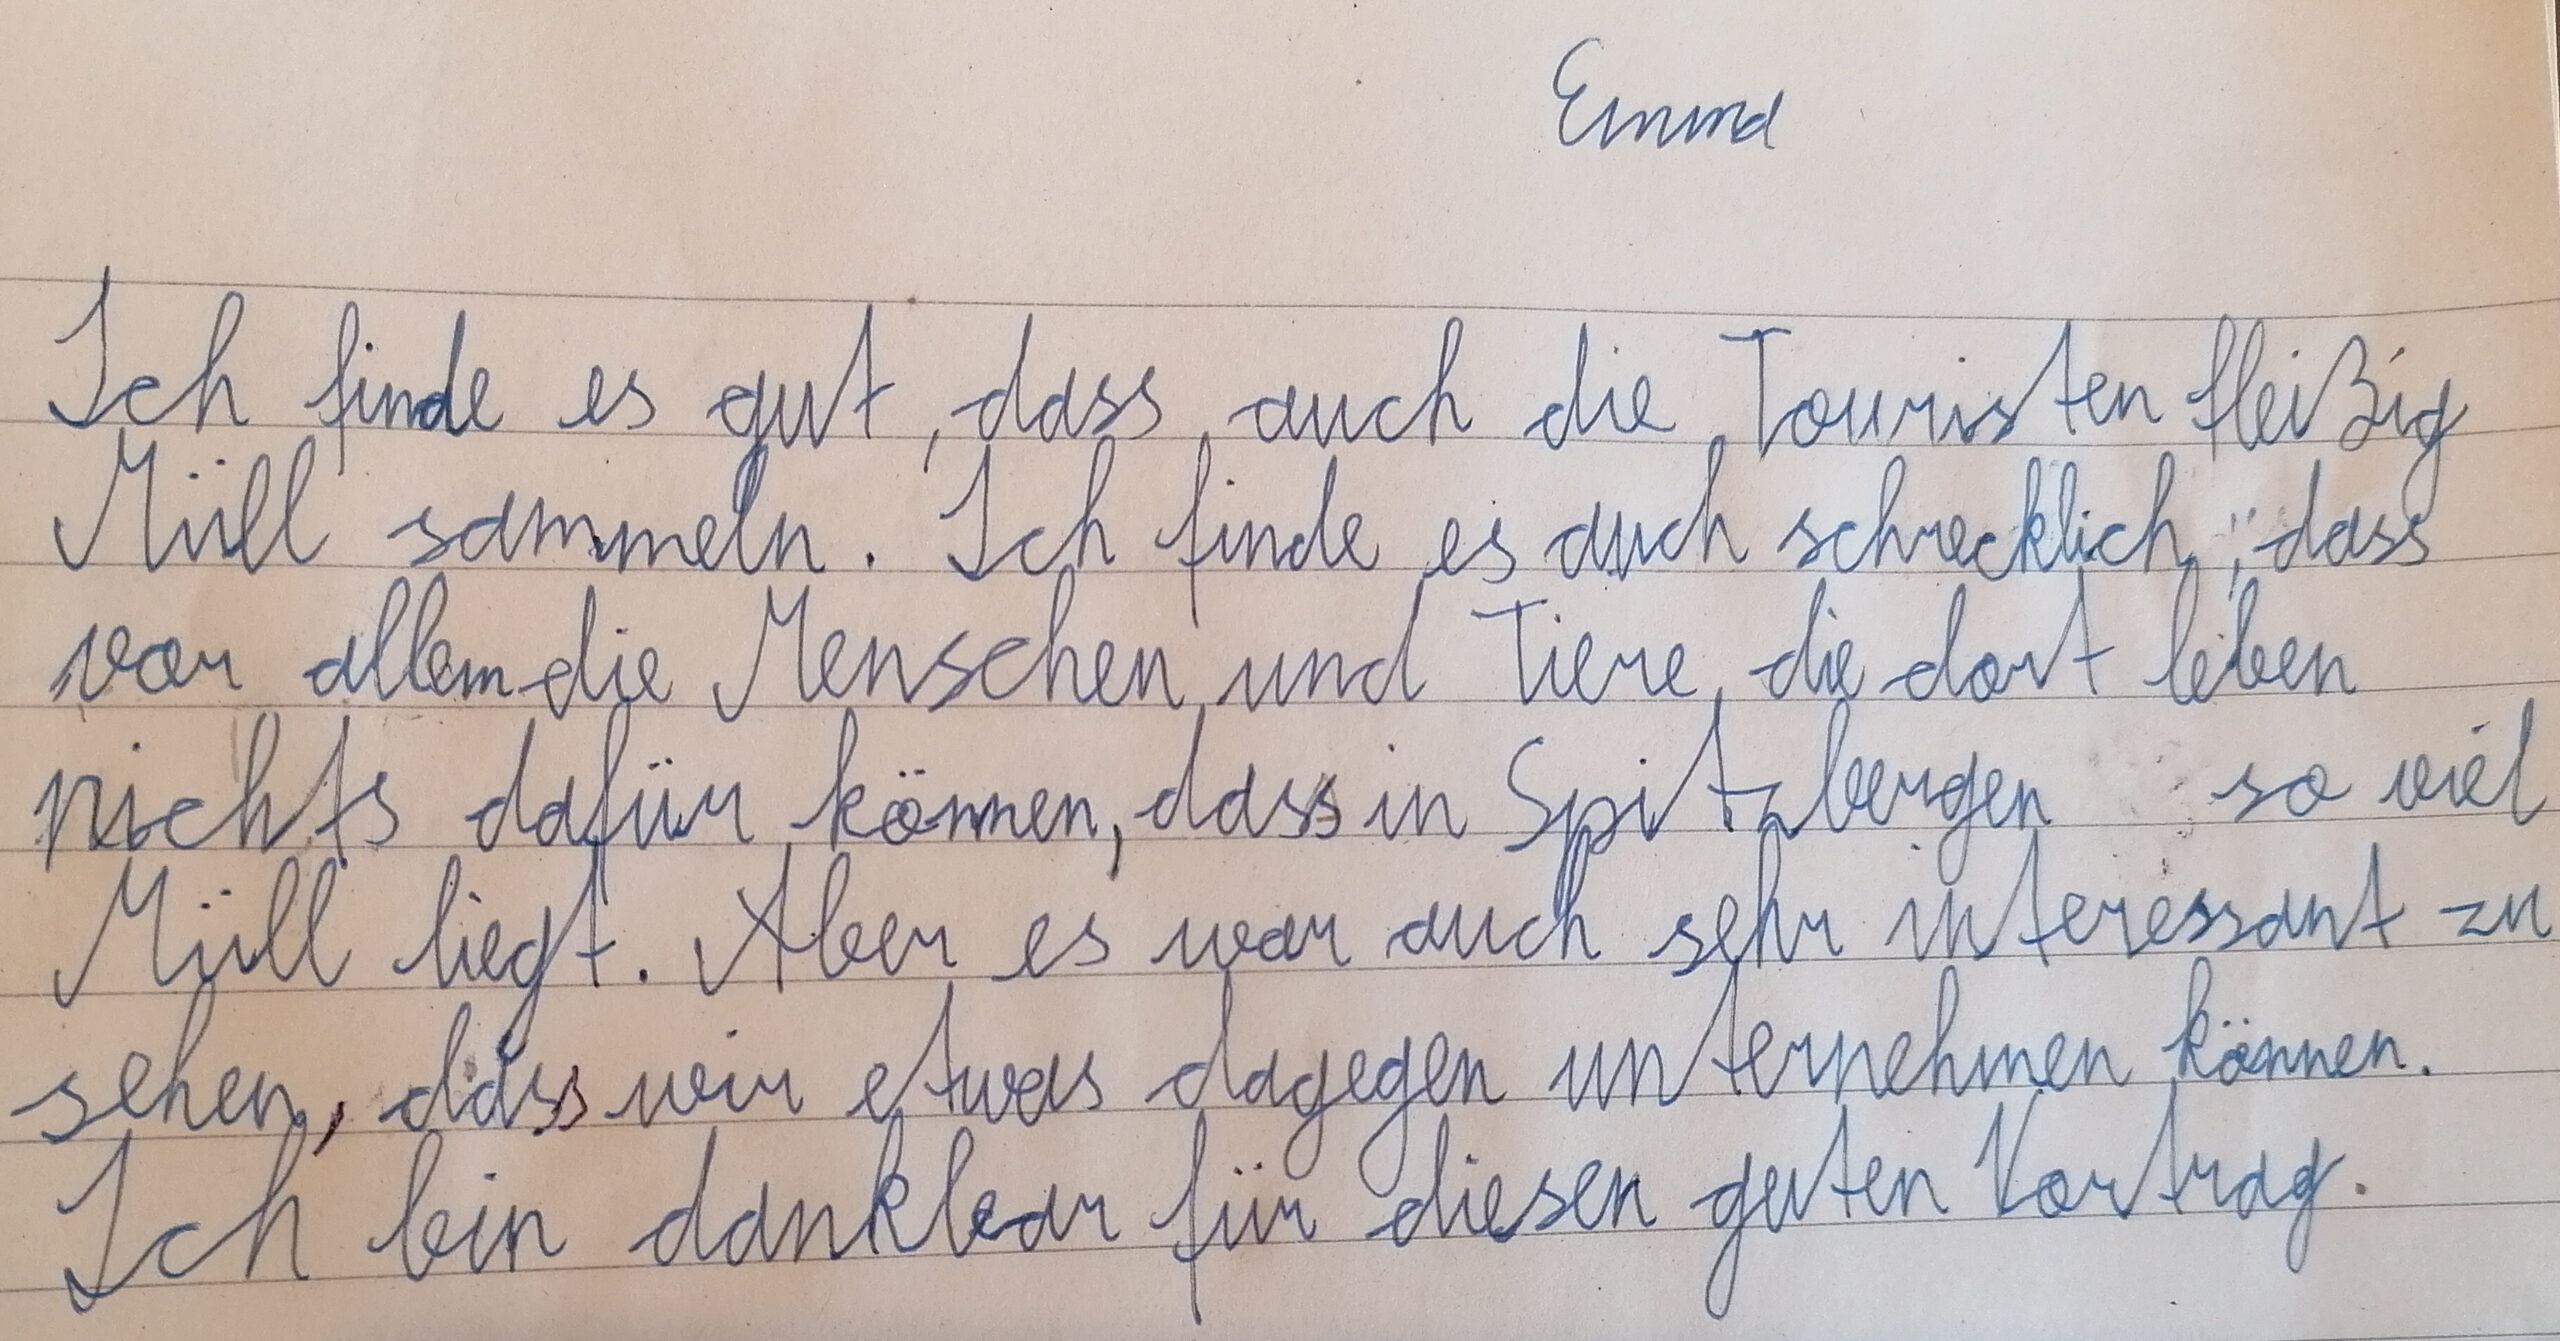 Emma
Ich finde es gut, dass auch die Touristen fleißig
Müll sammeln. Ich finde es auch schrecklich, dass
vor allem die Menschen und Tiere, die dort leben
nichts dafür können, dass in Spitzbergen so viel
Müll liegt. Aber es war auch sehr interessant zu
sehen, dass wir etwas dagegen unternehmen können.
Ich bin dankbar für diesen guten Vortrag.